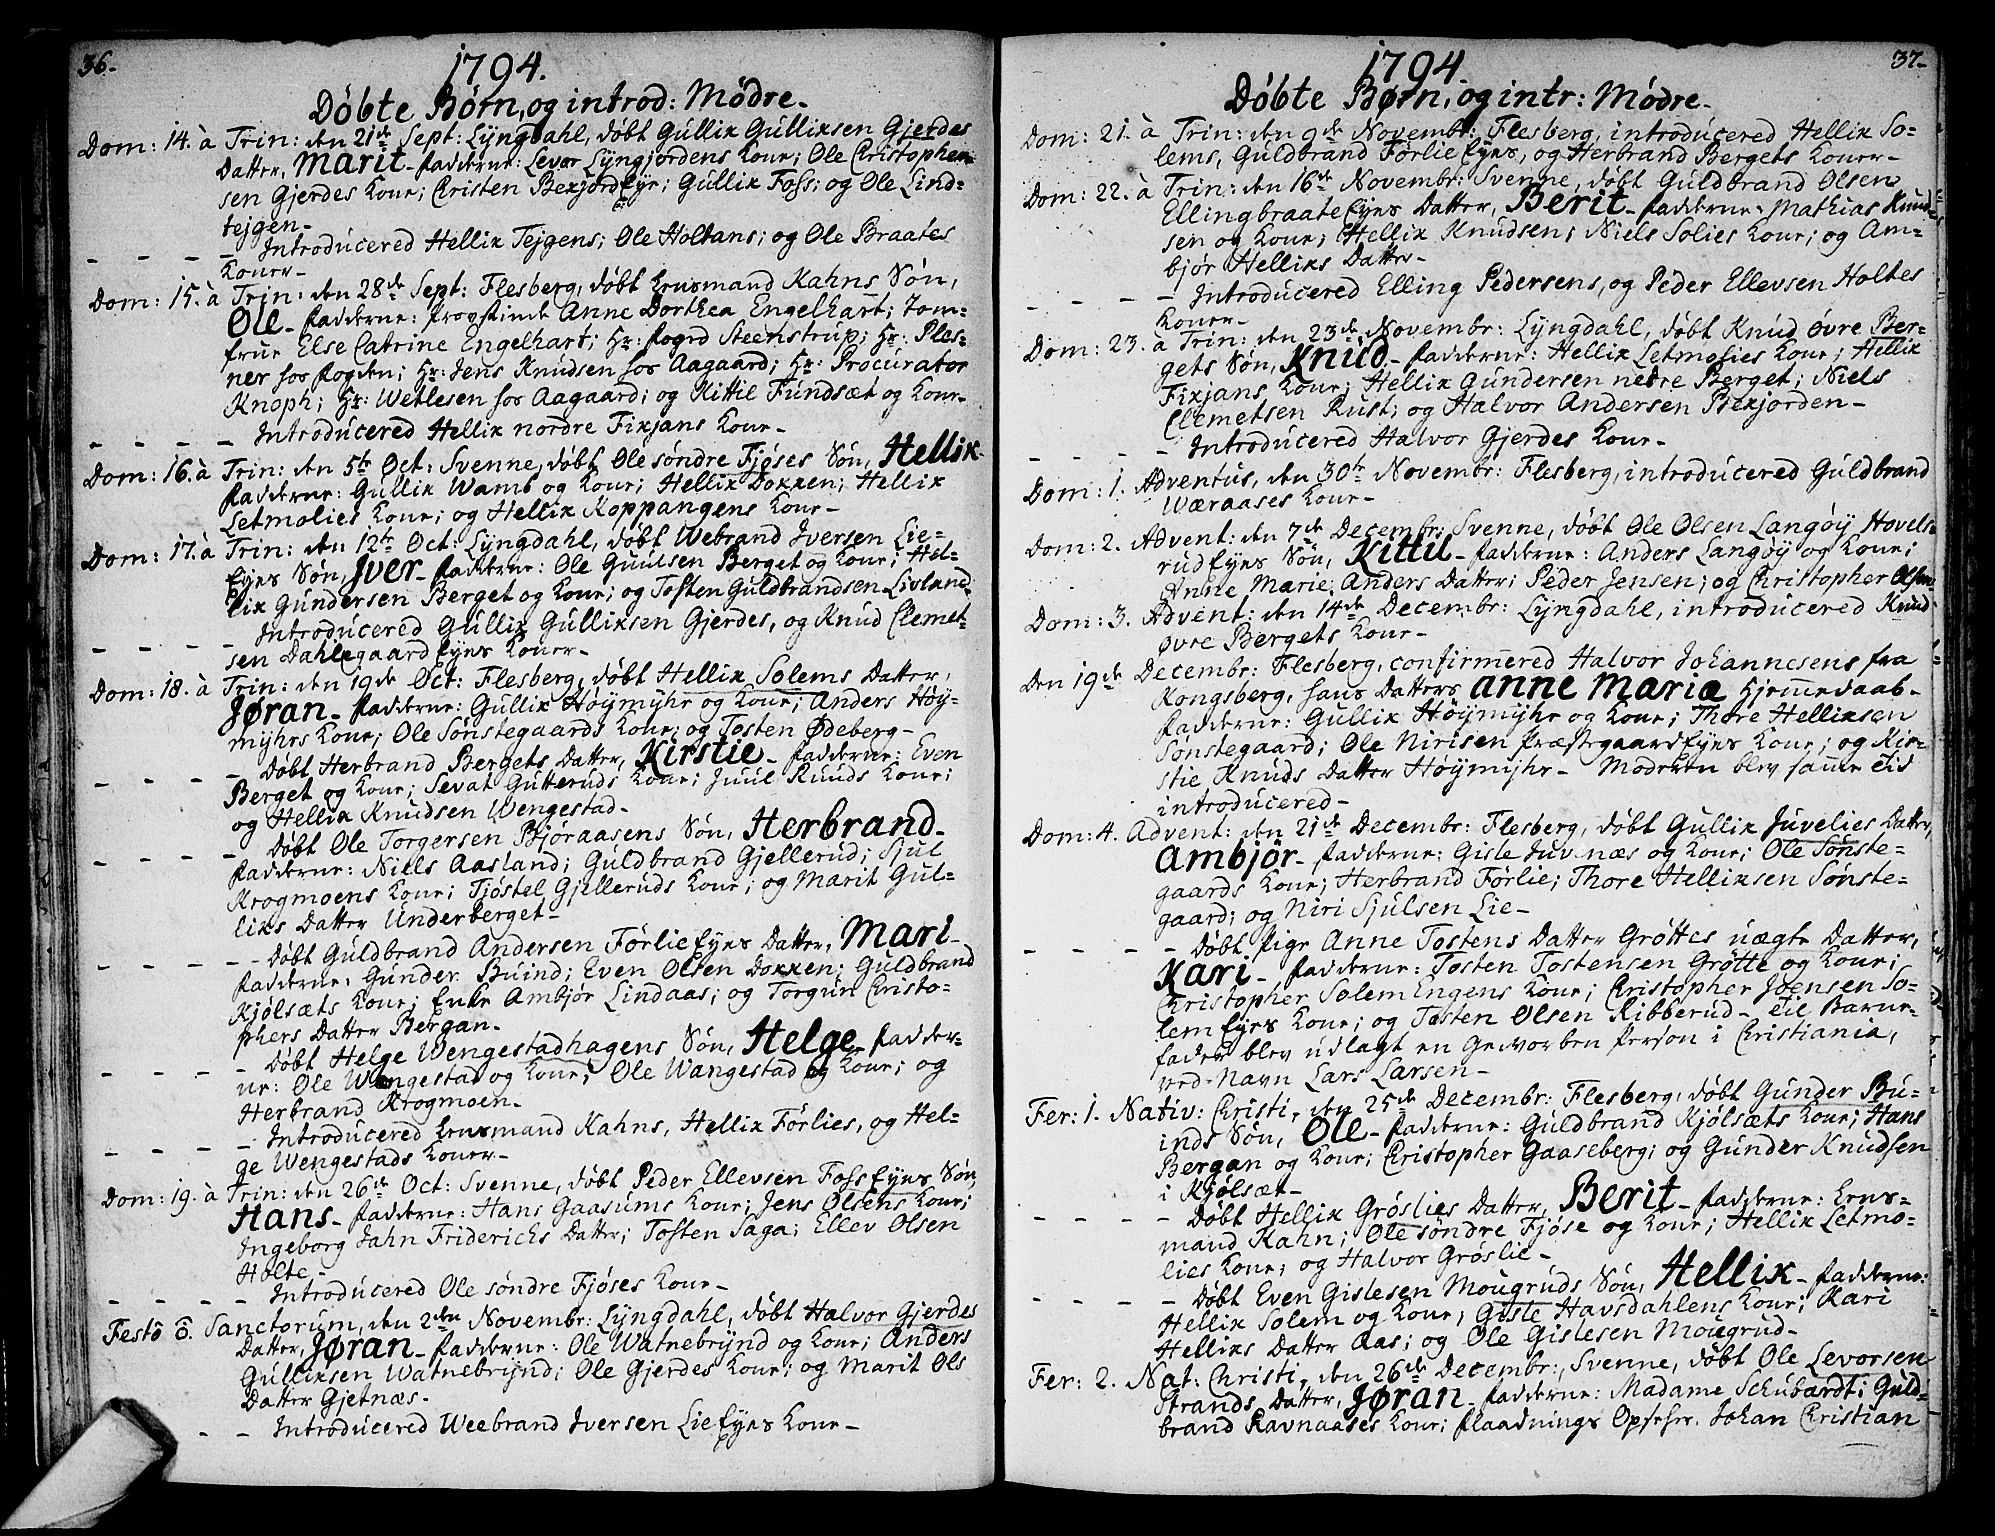 36.
1794.
Döbte Börn, og introd: Mödre.
Dom: 14. à Trin: den 21de Sept: Lyngdahl, döbt Gullik Gulliksen Gjerdes
Datter, Marit. Fadderne: Levor Lyngjordens Kone; Ole Christopher-
sen Gjerdes Kone; Cristen Bekjord Eye; Gullik Foss; og Ole Lind-
tejgen.
- - - - Introducered Hellik Tejgens; Ole Holtans; og Ole Braates
Koner.
Dom: 15. à Trin: den 28de Sept: Flesberg, döbt Lensmand Kahns Sön,
Ole. Fadderne: Provstinde Anne Dorthea Engelhart; Jom-
frue Else Catrine Engelhart; Hr: Fogd Steenstrup; Hr: Ples-
ner hos Fogden; Hr: Jens Knudsen hos Aagaard; Hr: Procurator
Knoph; Hr: Wetlesen hos Aagaard; og Kittil Fundsæt og Kone.
- - - - Introducered Hellik nordre Fixjans Kone.
Dom: 16. à Trin: den 5te Oct: Svenne, döbt Ole söndre Fjöses Sön, Hellik.
Fadderne: Gullik Wamb og Kone; Hellik Dokken; Hellik
Letmolies Kone; og Hellik Koppangens Kone.
Dom: 17. à Trin: den 12te Oct: Lyngdahl, döbt Webrand Iversen Lie-
Eyes Sön, Iver. Fadderne: Ole Guulsen Berget og Kone; Hel-
lik Gundersen Berget og Kone; og Tosten Guldbrandsen Livland.
- - - - Introducered Gullik Gulliksen Gjerdes, og Knud Clemet-
sen Dahlegaard Eyes Koner.
Dom: 18. à Trin: den 19de Oct: Flesberg, döbt Hellik Solems Datter,
Jøran. Fadderne: Gullik Höymyhr og Kone; Anders Höy-
myhrs Kone; Ole Sönstegaards Kone; og Tosten Ødeberg.
- - - - Döbt Herbrand Bergets Datter, Kirstie. Fadderne: Even
Berget og Kone; Sevat Gutteruds Kone; Juul Ruuds Kone;
og Hellik Knudsen Wengestad.
- - - - Döbt Ole Torgersen Björaasens Sön, Herbrand.
Fadderne: Niels Aasland; Guldbrand Gjellerud; Sjul
Krogmoens Kone; Tjöstel Gjelleruds Kone; og Marit Gul-
liks Datter Underberget.
- - - - Döbt Guldbrand Andersen Förlie Eyes Datter, Mari.
Fadderne: Gunder Buind; Even Olsen Dokken; Guldbrand
Kjölsæts Kone; Enke Ambjör Lindaas; og Torgun Cristo-
phers Datter Bergan.
- - - - Döbt Helge Wengestadhagens Sön, Helge. Fadder-
ne: Ole Wengestad og Kone; Ole Wangestad og Kone; og
Herbrand Krogmoen.
- - - - Introducered Lensmand Kahns, Hellik Förlies, og Hel-
ge Wengestads Koner.
Dom: 19. à Trin: den 26de Oct: Svenne, döbt Peder Ellevsen Foss Eyes Sön,
Hans. Fadderne: Hans Gaasums Kone; Jens Olsens Kone;
Ingeborg Jahn Friderichs Datter; Tosten Saga; Ellev Olsen
Holte.
- - - - Introducered Ole söndre Fjöses Kone.
Festo O. Sanctorum, den 2den Novembr: Lyngdahl, döbt Halvor Gjerdes
Datter, Jøran. Fadderne: Ole Watnebrynd og Kone; Anders
Gulliksen Watnebrynd; Ole Gjerdes Kone; og Marit Ols
Datter Gjetnæs.
- - Introducered Weebrand Iversen Lie Eyes Kone.
37.
1794.
Döbte Børn, og intr: Mödre.
Dom: 21. à Trin: den 9de Novembr: Flesberg, introducered Hellik So-
lems, Guldbrand Förlie Eyes, og Herbrand Bergets Koner.
Dom: 22. à Trin: den 16de Novembr: Svenne, döbt Guldbrand Olsen
Ellingbraate Eyes Datter, Berit. Fadderne: Mathias Knud-
sen og Kone; Hellik Knudsen; Niels Solies Kone; og Am-
björ Helliks Datter.
- - - - Introducered Elling Pedersens, og Peder Ellevsen Holtes
Koner.
Dom: 23. à Trin: den 23de Novembr: Lyngdahl, döbt Knud övre Ber-
gets Sön, Knud. Fadderne: Hellik Letmolies Kone; Hellik
Fixjans Kone; Hellik Gundersen nedre Berget; Niels
Clemetsen Rust; og Halvor Andersen Bekjorden.
- - - - Introducered Halvor Gjerdes Kone.
Dom: 1. Adventus, den 30te Novembr: Flesberg, introducered Guldbrand
Wæraases Kone.
Dom: 2. Advent: den 7de Decembr: Svenne, döbt Ole Olsen Langöy Hovels-
rud Eyes Sön, Kittil. Fadderne: Anders Langöy og Kone;
Anne Marie Anders Datter; Peder Jensen; og Christopher Olsen
Dom: 3. Advent: den 14de Decembr: Lyngdahl, introducered Knud
övre Bergets Kone.
Den 19de Decembr: Flesberg, confirmered Halvor Johannesens fra
Kongsberg, hans Datters Anne Maria Hjemmedaab.
Fadderne: Gullik Höymyhr og Kone; Thore Helliksen
Sönstegaard; Ole Nirisen Præstegaard Eyes Kone; og Kir-
stie Knuds Datter Höymyhr. Moderen blev samme Tid
introducered.
Dom: 4. Advent: den 21de Decembr: Flesberg, döbt Gullik Juvelies Datter,
Ambjör. Fadderne: Gisle Juvenæs og Kone; Ole Sönste-
gaards Kone; Herbrand Förlie; Thore Helliksen Sönste-
gaard; og Niri Sjulsen Lie.
- - - - Döbt Pige Anne Tostens Datter Gröttes uægte Datter,
Kari. Fadderne: Tosten Tostensen Grötte og Kone;
Christopher Solem Engens Kone; Cristopher Joensen So-
lem Eyes Kone; og Tosten Olsen Ribberud. Til Barne-
fader blev udlagt en Geworben Person i Christiania,
ved Navn Lars Larsen.
Fer: 1. Nativ: Christi, den 25de Decembr: Flesberg, döbt Gunder Bu-
inds Sön, Ole. Fadderne: Guldbrand Kjölsæts Kone; Hans
Bergan og Kone; Christopher Gaaseberg; og Gunder Knudsen
i Kjölsæt.
- - - - Döbt Hellik Gröslies Datter, Berit. Fadderne: Lens-
mand Kahn; Ole söndre Fjöse og Kone; Hellik Letmo-
lies Kone; og Halvor Gröslie.
- - - - Döbt Even Gislesen Mougruds Sön, Hellik. Fadderne:
Hellik Solem og Kone; Gisle Havsdahlens Kone; Kari
Helliks Datter Aas; og Ole Gislesen Mougrud.
Fer: 2. Nat: Christi, den 26de Decembr: Svenne, döbt Ole Levorsen
Strands Datter, Jøran. Fadderne: Madame Schubardt; Guld-
brand Ravnaases Kone; Flaadnings Opsehr. Johan Christian